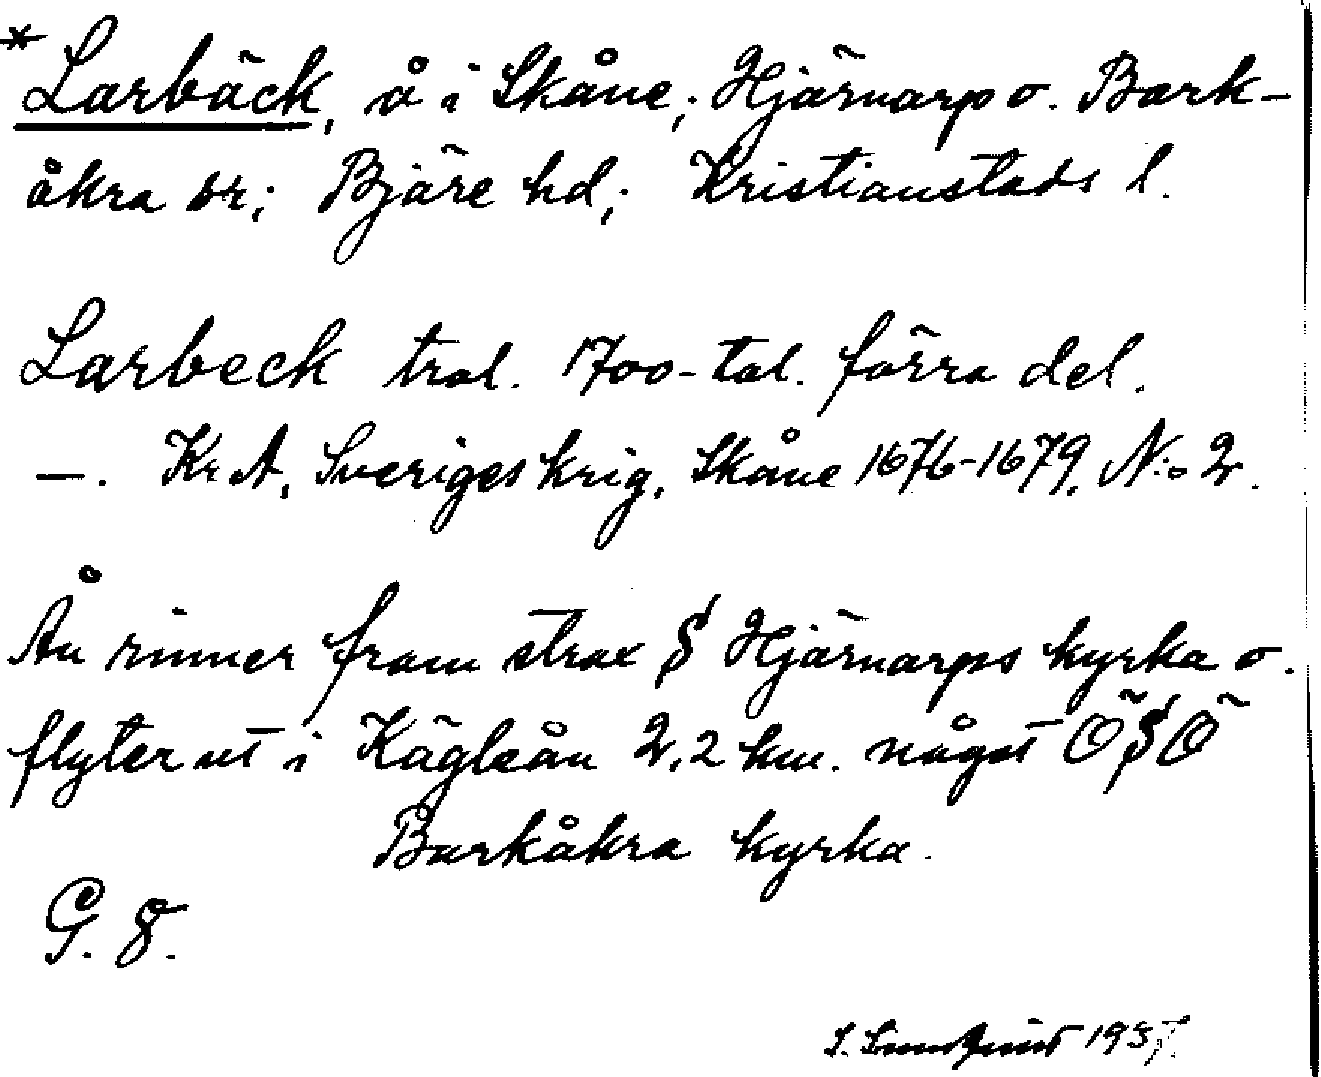 * Larbäck, å i Skåne; Hjärnarp o. Bark-
åkra sr; Bjäre hd; Kristianstads l.
Larbeck trol. 1700-tal. förra del.
—. KrA, Sveriges krig, Skåne 1676-1679, N:o 2.
Ån rinner fram strax S Hjärnarps kyrka o.
flyter ut i Kägleån 2,2 km. något ÖSÖ
Barkåkra kyrka.
G. 8.